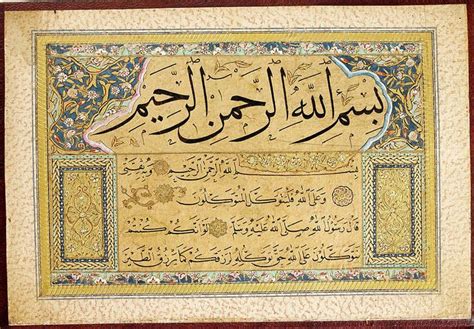 بسم الله الرحمن الرحيم
بسم الله الرحمن الرحيم
وعلى الله فليتوكل المتوكلون
قال رسول الله صلى الله عليه وسلم لو أنكم كنتم
توكلون على الله حق توكله لرزقكم كما يرزق الطير